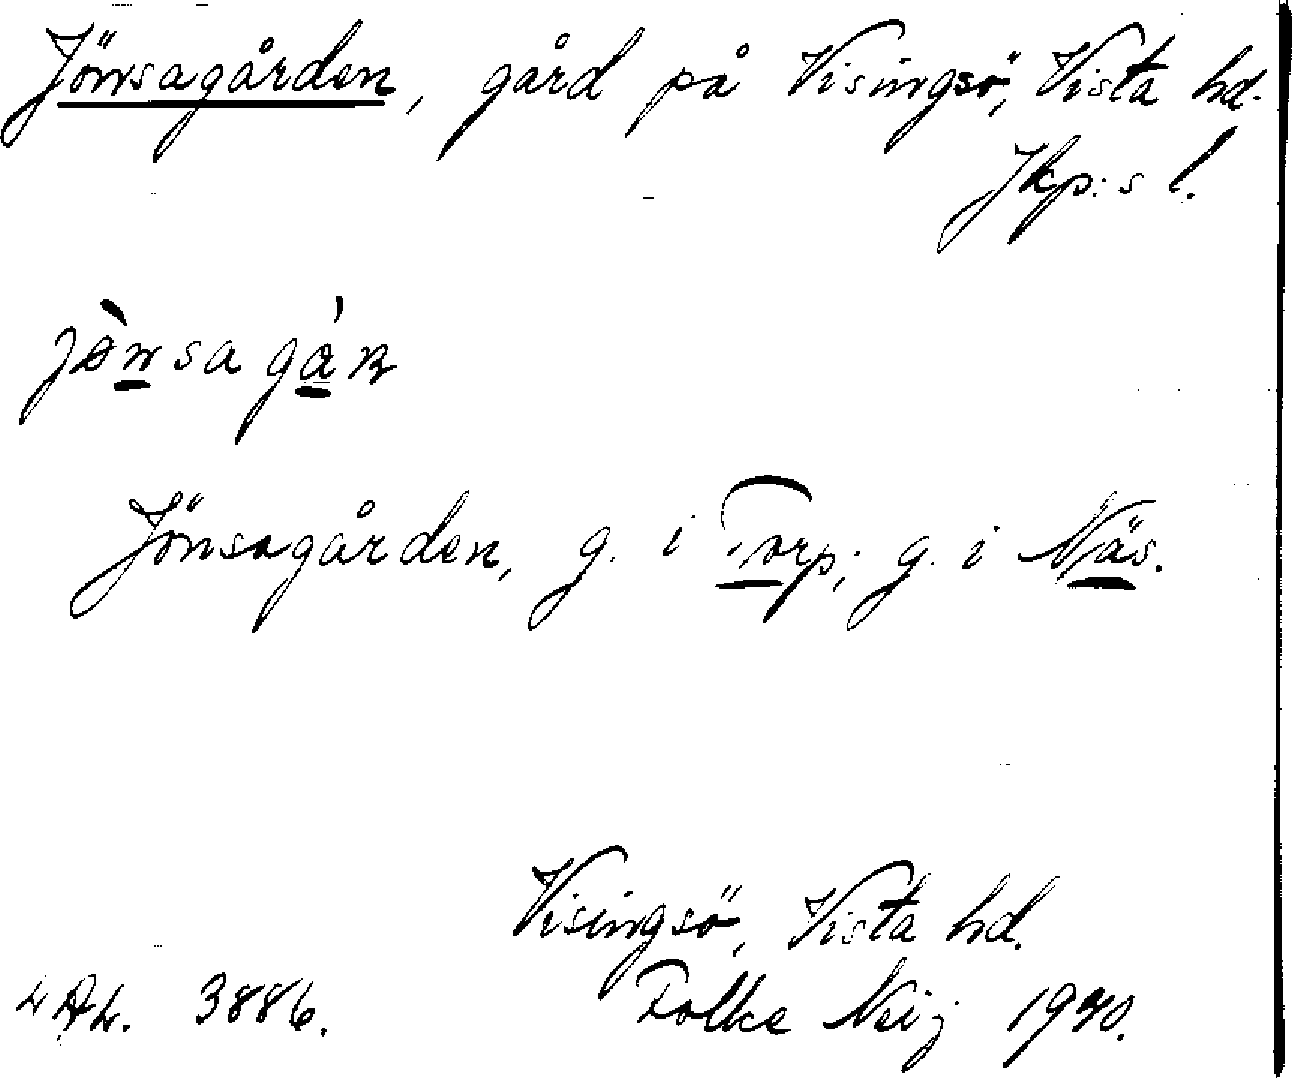 Jönsagården, gård på Visingsö, Vista hd.
Jkp:s l.
Jönsagården, g. i Torp; g. i Näs.
Visingsö, Vista hd.
3886. Folke Neij 1940.